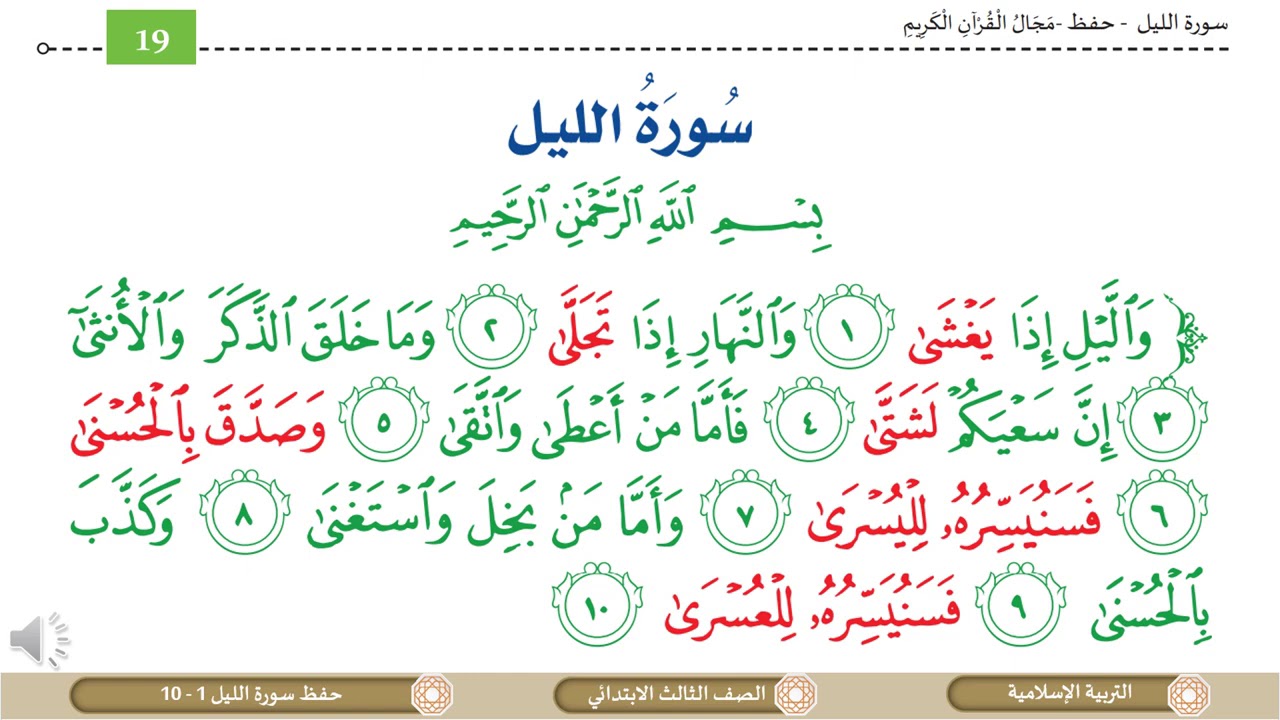 سورة الليل - حفظ -مَجَالُ الْقُرْآنِ الْكَرِيمِ
19
سُورَةُ الليل
بِسْمِ ٱللَّهِ ٱلرَّحْمَٰنِ ٱلرَّحِيمِ
وَٱلَّيْلِ إِذَا يَغْشَىٰ ١ وَٱلنَّهَارِ إِذَا تَجَلَّىٰ ٢ وَمَا خَلَقَ ٱلذَّكَرَ وَٱلْأُنثَىٰٓ
٣ إِنَّ سَعْيَكُمْ لَشَتَّىٰ ٤ فَأَمَّا مَنْ أَعْطَىٰ وَٱتَّقَىٰ ٥ وَصَدَّقَ بِٱلْحُسْنَىٰ
٦ فَسَنُيَسِّرُهُۥ لِلْيُسْرَىٰ ٧ وَأَمَّا مَنۢ بَخِلَ وَٱسْتَغْنَىٰ ٨ وَكَذَّبَ
بِٱلْحُسْنَىٰ ٩ فَسَنُيَسِّرُهُۥ لِلْعُسْرَىٰ ١٠
التربية الإسلامية
الصف الثالث الابتدائي
حفظ سورة الليل 1 - 10